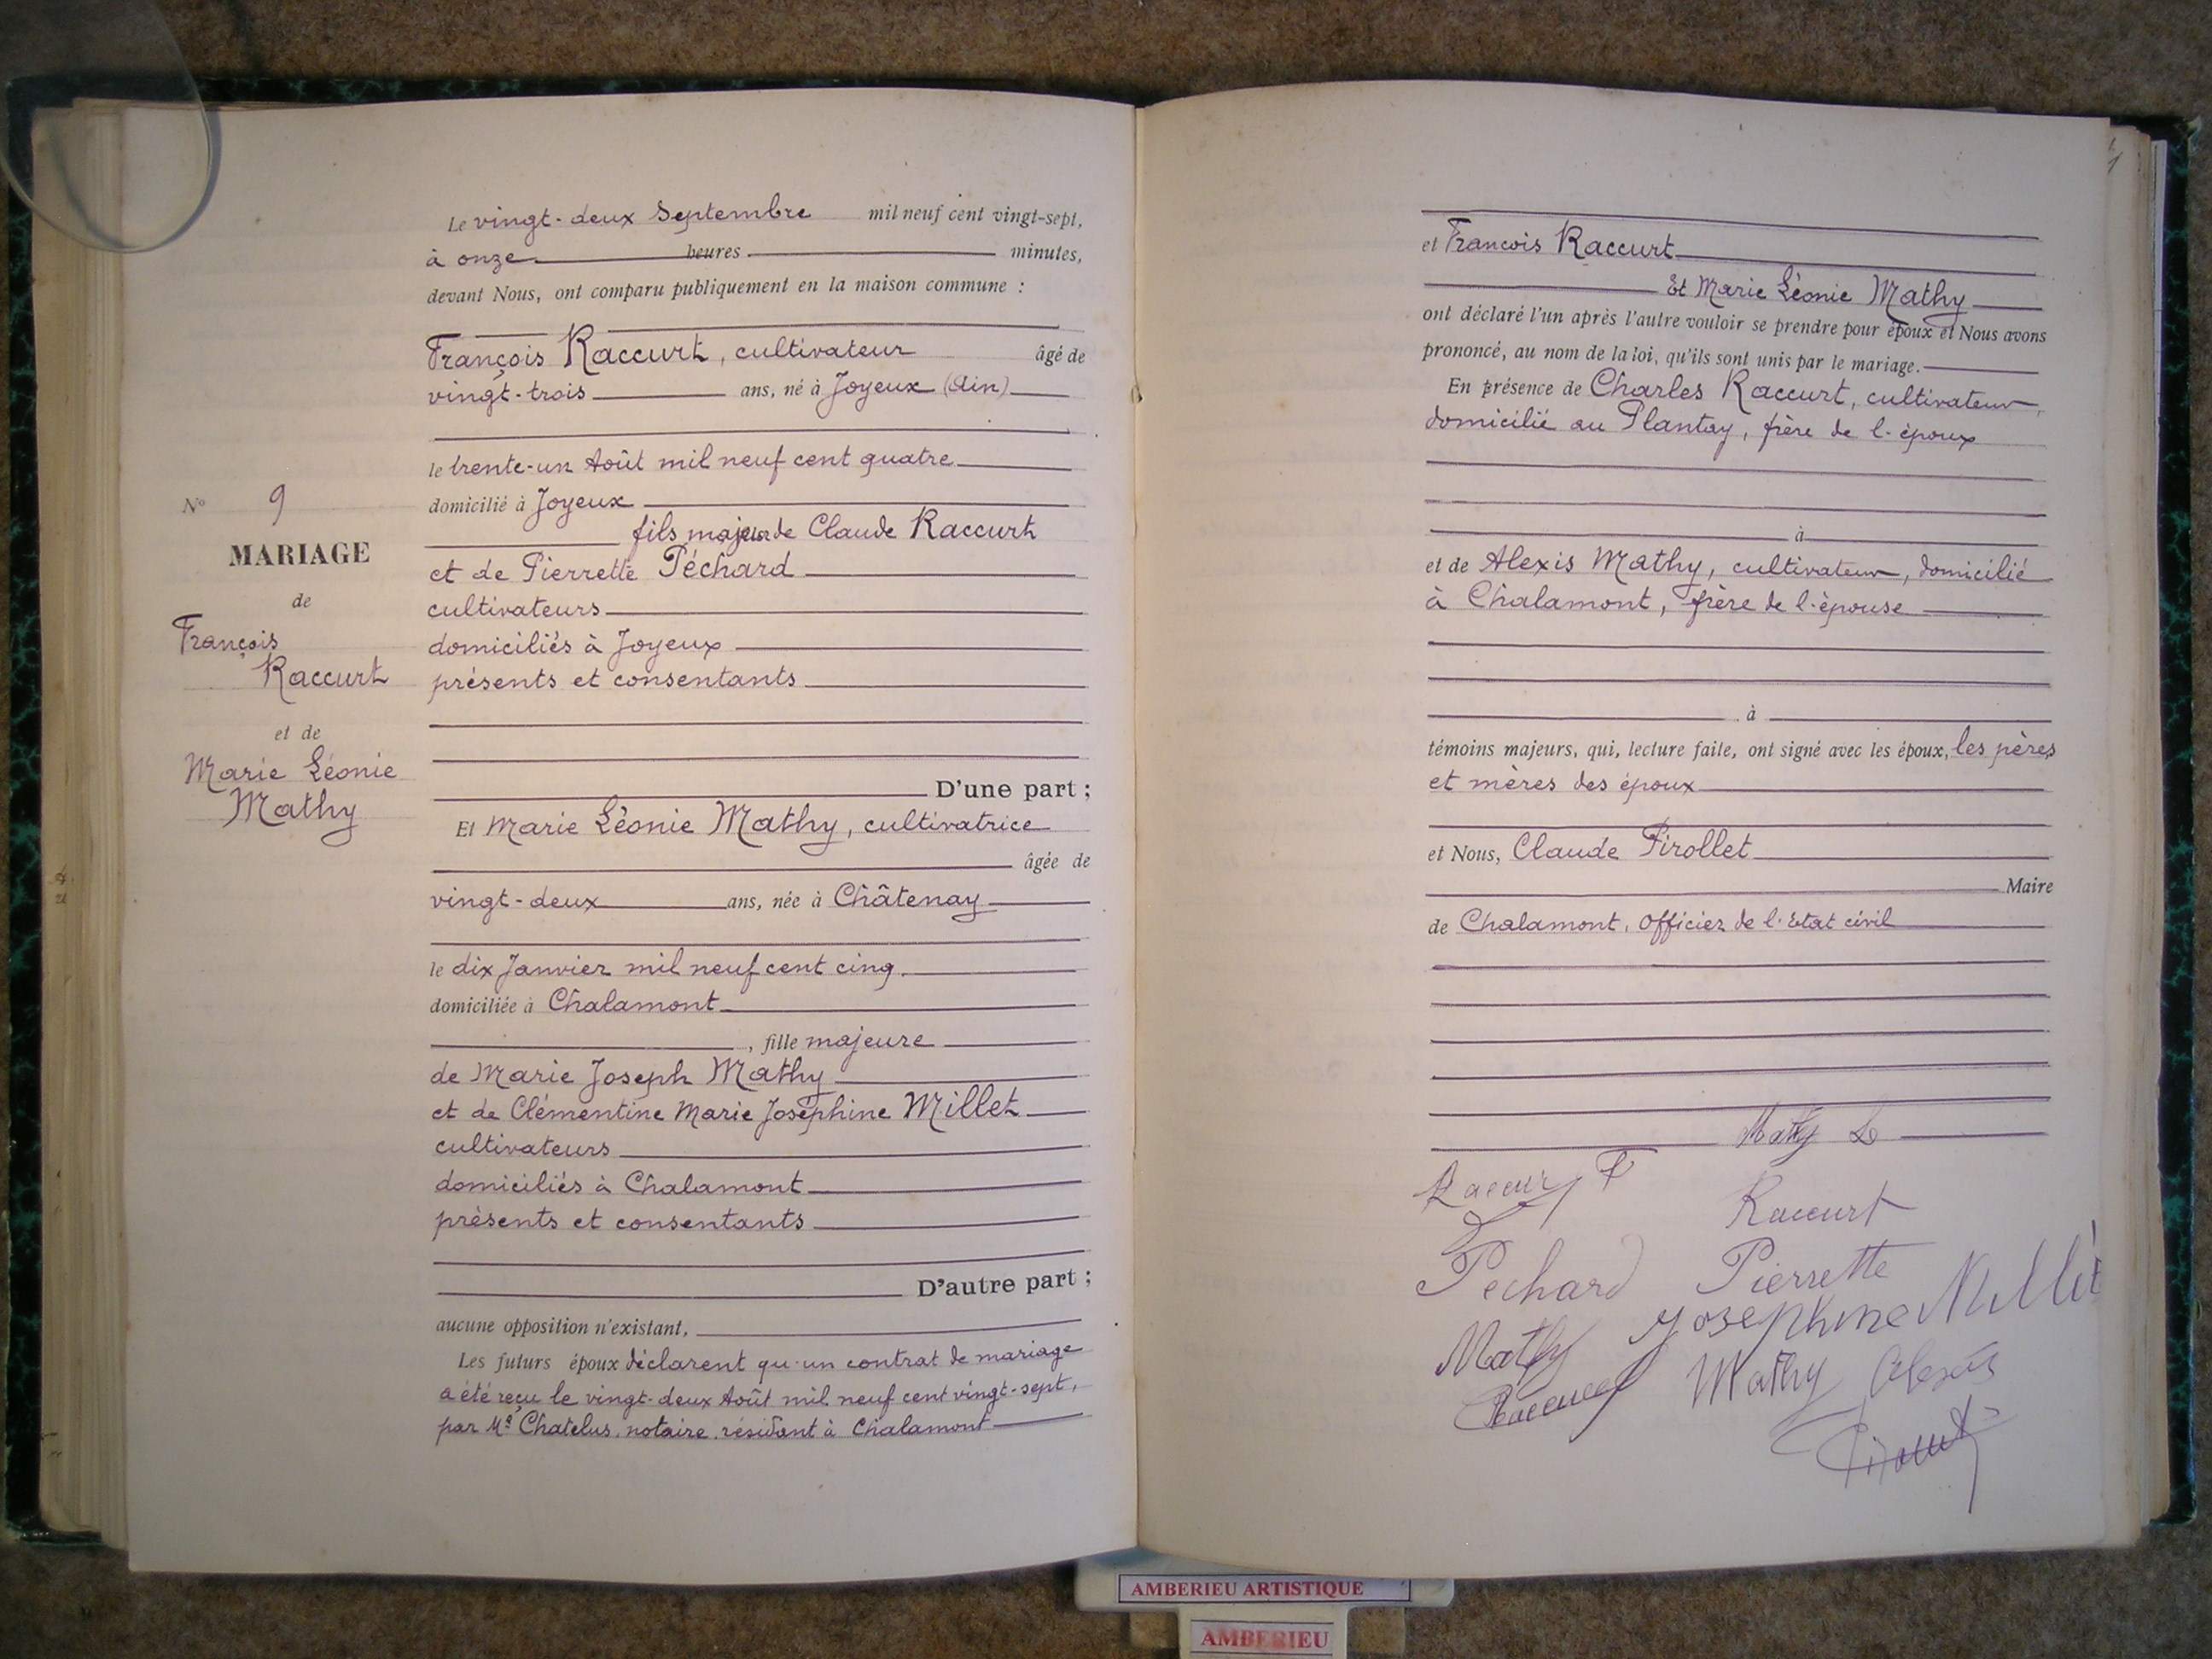 N° 9
MARIAGE
de
François
Raccurt
et de
Marie Léonie
Mathy
Le vingt-deux Septembre mil neuf cent vingt-sept,
à onze heures minutes,
devant Nous, ont comparu publiquement en la maison commune :
François Raccurt, cultivateur âgé de
vingt-trois ans, né à Joyeux (Ain)
le trente-un Août mil neuf cent quatre
domicilié à Joyeux
fils majeur de Claude Raccurt
et de Pierrette Péchard
cultivateurs
domiciliés à Joyeux
présents et consentants
D'une part ;
Et Marie Léonie Mathy, cultivatrice
âgée de
vingt-deux ans, née à Châtenay
le dix Janvier mil neuf cent cinq.
domiciliée à Chalamont
, fille majeure
de Marie Joseph Mathy
et de Clémentine Marie Joséphine Millet
cultivateurs
domiciliés à Chalamont
présents et consentants
D'autre part ;
aucune opposition n'existant,
Les futurs époux déclarent qu'un contrat de mariage
a été reçu le vingt-deux Août mil neuf cent vingt-sept,
par Me Chatelus, notaire, résidant à Chalamont
et François Raccurt
Et Marie Léonie Mathy
ont déclaré l'un après l'autre vouloir se prendre pour époux et Nous avons
prononcé, au nom de la loi, qu'ils sont unis par le mariage.
En présence de Charles Raccurt, cultivateur,
domicilié au Plantay, frère de l'époux
à
et de Alexis Mathy, cultivateur, domicilié
à Chalamont, frère de l'épouse
à
témoins majeurs, qui, lecture faite, ont signé avec les époux, les pères
et mères des époux
et Nous, Claude Pirollet
Maire
de Chalamont, Officier de l'Etat civil
Mathy L
Raccurt F
Raccurt
Pechard Pierrette
Josephine Millet
Mathy
Mathy Alexis
Raccurt
AMBERIEU ARTISTIQUE
AMBERIEU